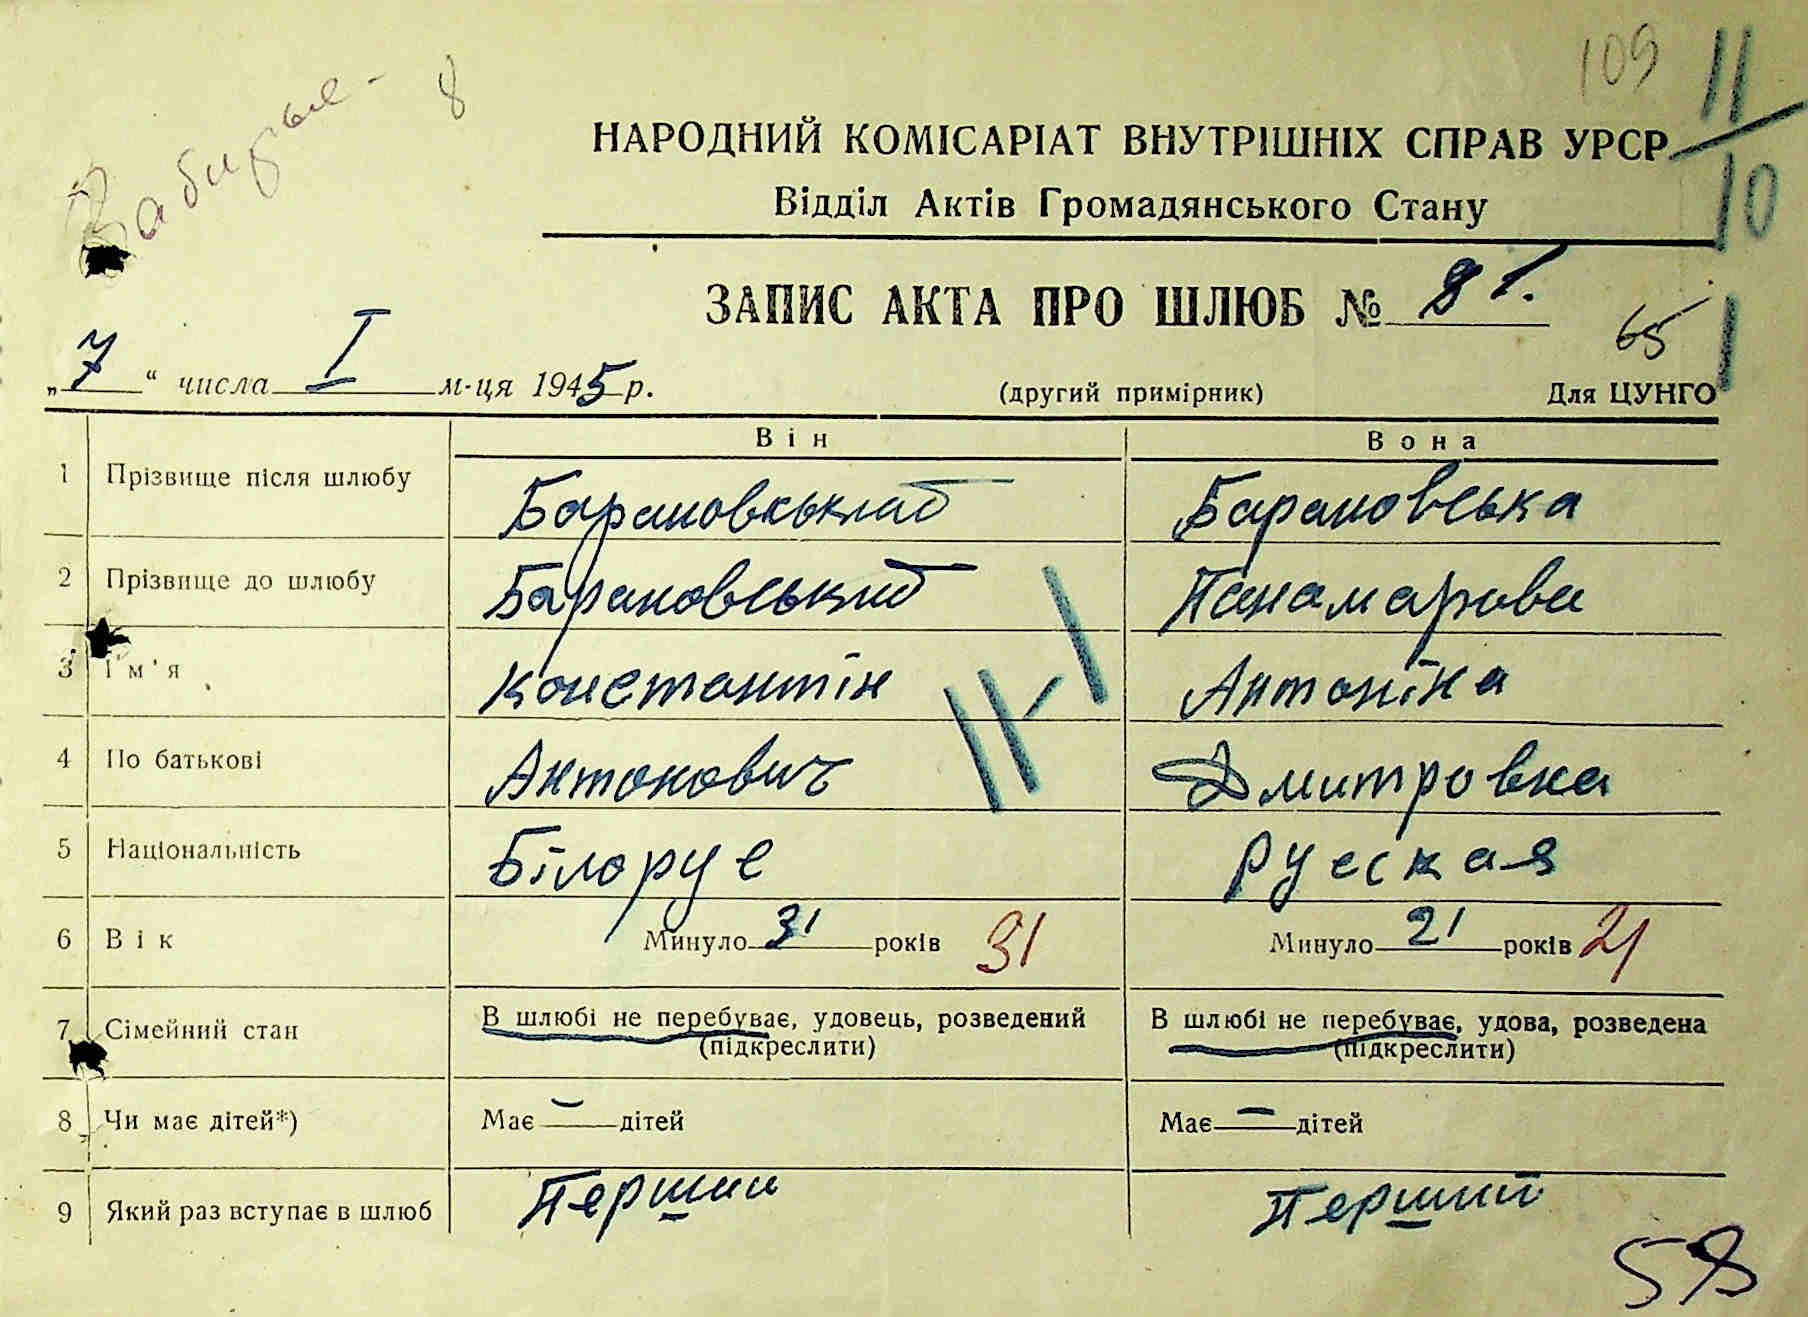 109
11/10
8
НАРОДНИЙ КОМІСАРІАТ ВНУТРІШНІХ СПРАВ УРСР
Відділ Актів Громадянського Стану
ЗАПИС АКТА ПРО ШЛЮБ № 81.
65
„7“ числа I м-ця 1945 р. (другий примірник) Для ЦУНГО
Він Вона
1 Прізвище після шлюбу Барановський Барановська
2 Прізвище до шлюбу Барановський Панамарьова
3 Ім'я Константін Антоніна
4 По батькові Антонович Дмитровна
5 Національність Білорус Русская
6 Вік Минуло 31 років 31 Минуло 21 років 21
7 Сімейний стан В шлюбі не перебуває, удовець, розведений В шлюбі не перебуває, удова, розведена
(підкреслити) (підкреслити)
8 Чи має дітей*) Має — дітей Має — дітей
9 Який раз вступає в шлюб Перший Перший